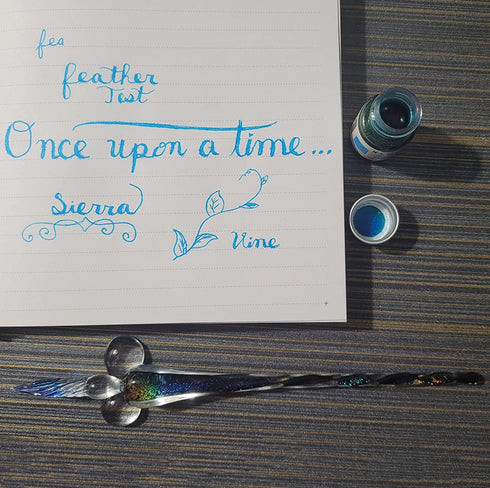 fea
feather
Test
Once upon a time...
Sierra
Vine